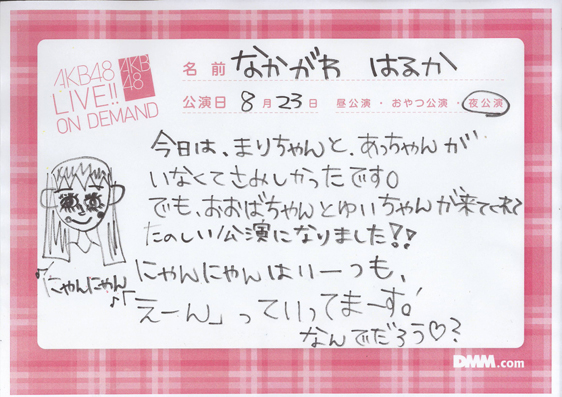 AKB48
LIVE!!
ON DEMAND
AKB
48
名前 なかがわ はるか
公演日 8月23日 昼公演・おやつ公演・夜公演
今日は、まりちゃんと、あっちゃんが
いなくてさみしかったです。
でも、おおばちゃんとゆいちゃんが来てくれて
たのしい公演になりました!!
にゃんにゃん
にゃんにゃんはいーつも、
「えーん」っていってまーす。
なんでだろう♡?
DMM.com